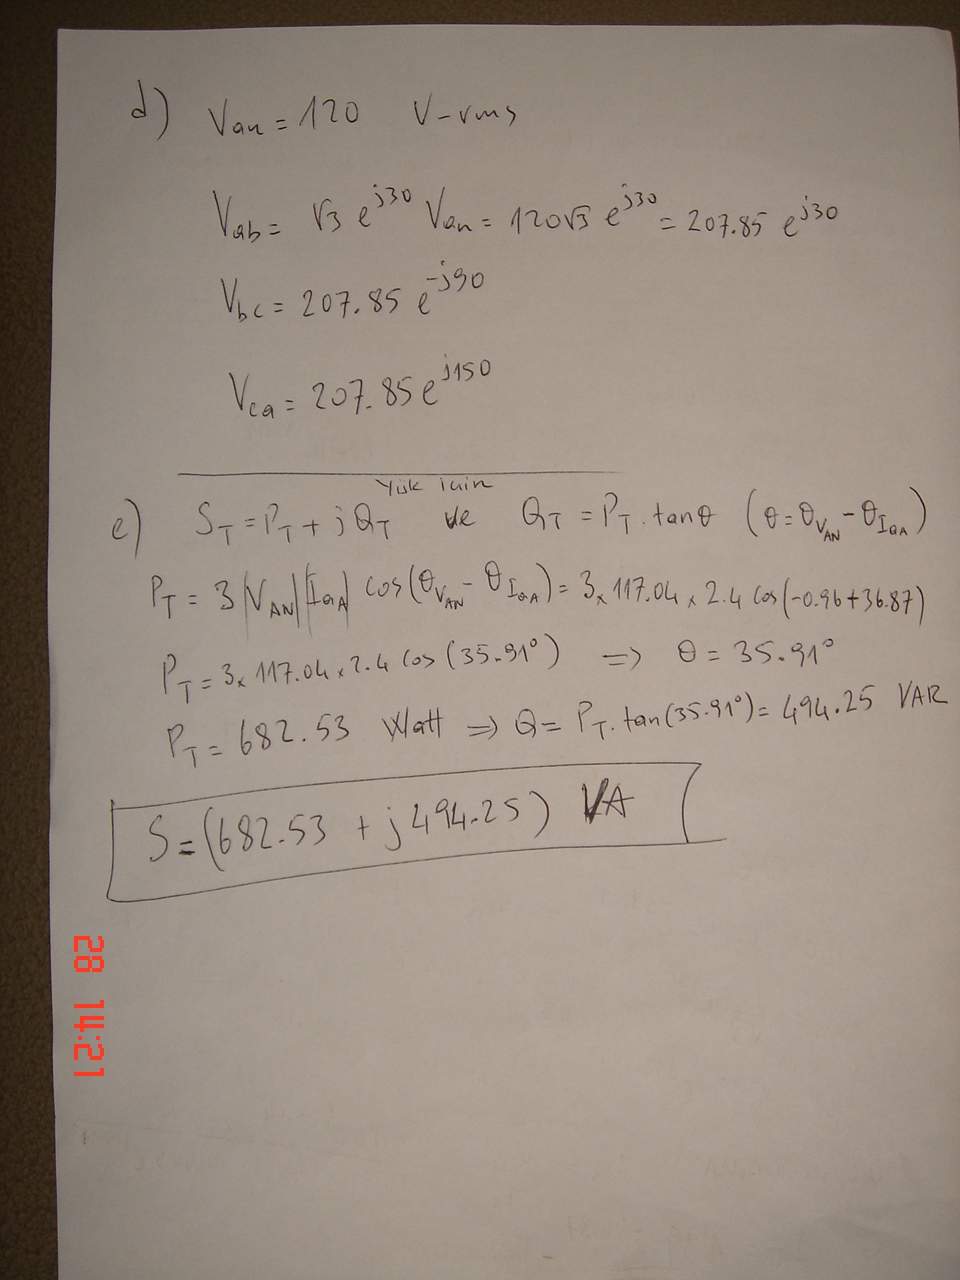 d) Van = 120 V-rms
Vab = √3 e^j30 Van = 120√3 e^j30 = 207.85 e^j30
Vbc = 207.85 e^-j90
Vca = 207.85 e^j150
Yük için
e) ST = PT + jQT ve QT = PT . tanθ (θ = θVAN - θIaA)
PT = 3 |VAN| |IaA| cos(θVAN - θIaA) = 3 x 117.04 x 2.4 cos(-0.96+36.87)
PT = 3 x 117.04 x 2.4 cos(35.91°) => θ = 35.91°
PT = 682.53 Watt => Q = PT . tan(35.91°) = 494.25 VAR
S = (682.53 + j494.25) VA
28 14:21